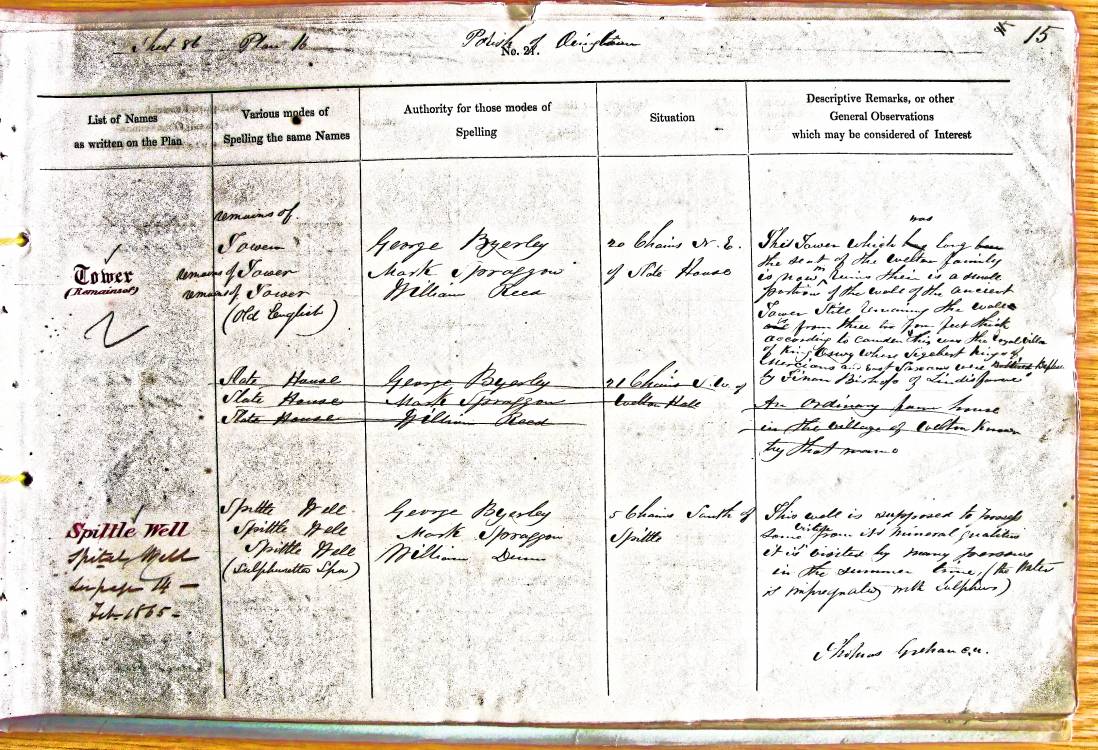 Sheet 86 Plan 16
Parish of Ovingham
No. 21.
15
List of Names
as written on the Plan
Various modes of
Spelling the same Names
Authority for those modes of
Spelling
Situation
Descriptive Remarks, or other
General Observations
which may be considered of Interest
Tower
(Remains of)
remains of
Tower
remains of Tower
remains of Tower
(Old English)
George Byerley
Mark Spraggon
William Reed
20 Chains N.E.
of Slate House
was
This Tower which has long been
the seat of the Welton family
is now in ruins their is a small
portion of the wall of the ancient
Tower Still remaining the walls
from three to four feet thick
according to Camden this was the royal villa
of King Oswy where Segebert King of
Mercians and East Saxons were baptised
by Finan Bishop of Lindisfarne
Slate House
Slate House
Slate House
George Byerley
Mark Spraggon
William Reed
21 Chains N.W. of
Welton Hall
An Ordinary farm house
in the village of Welton known
by that name
Spittle Well
Spital Well
See page 14
Feb. 1865
Spittle Well
Spittle Well
Spittle Well
(Sulphurettes Spa)
George Byerley
Mark Spraggon
William Dunn
5 Chains South of
Spittle
This well is supposed to possess
some virtue from its mineral qualities
it is visited by many persons
in the summer time, (the Water
is impregnated with Sulphur)
Thomas Graham c.a.